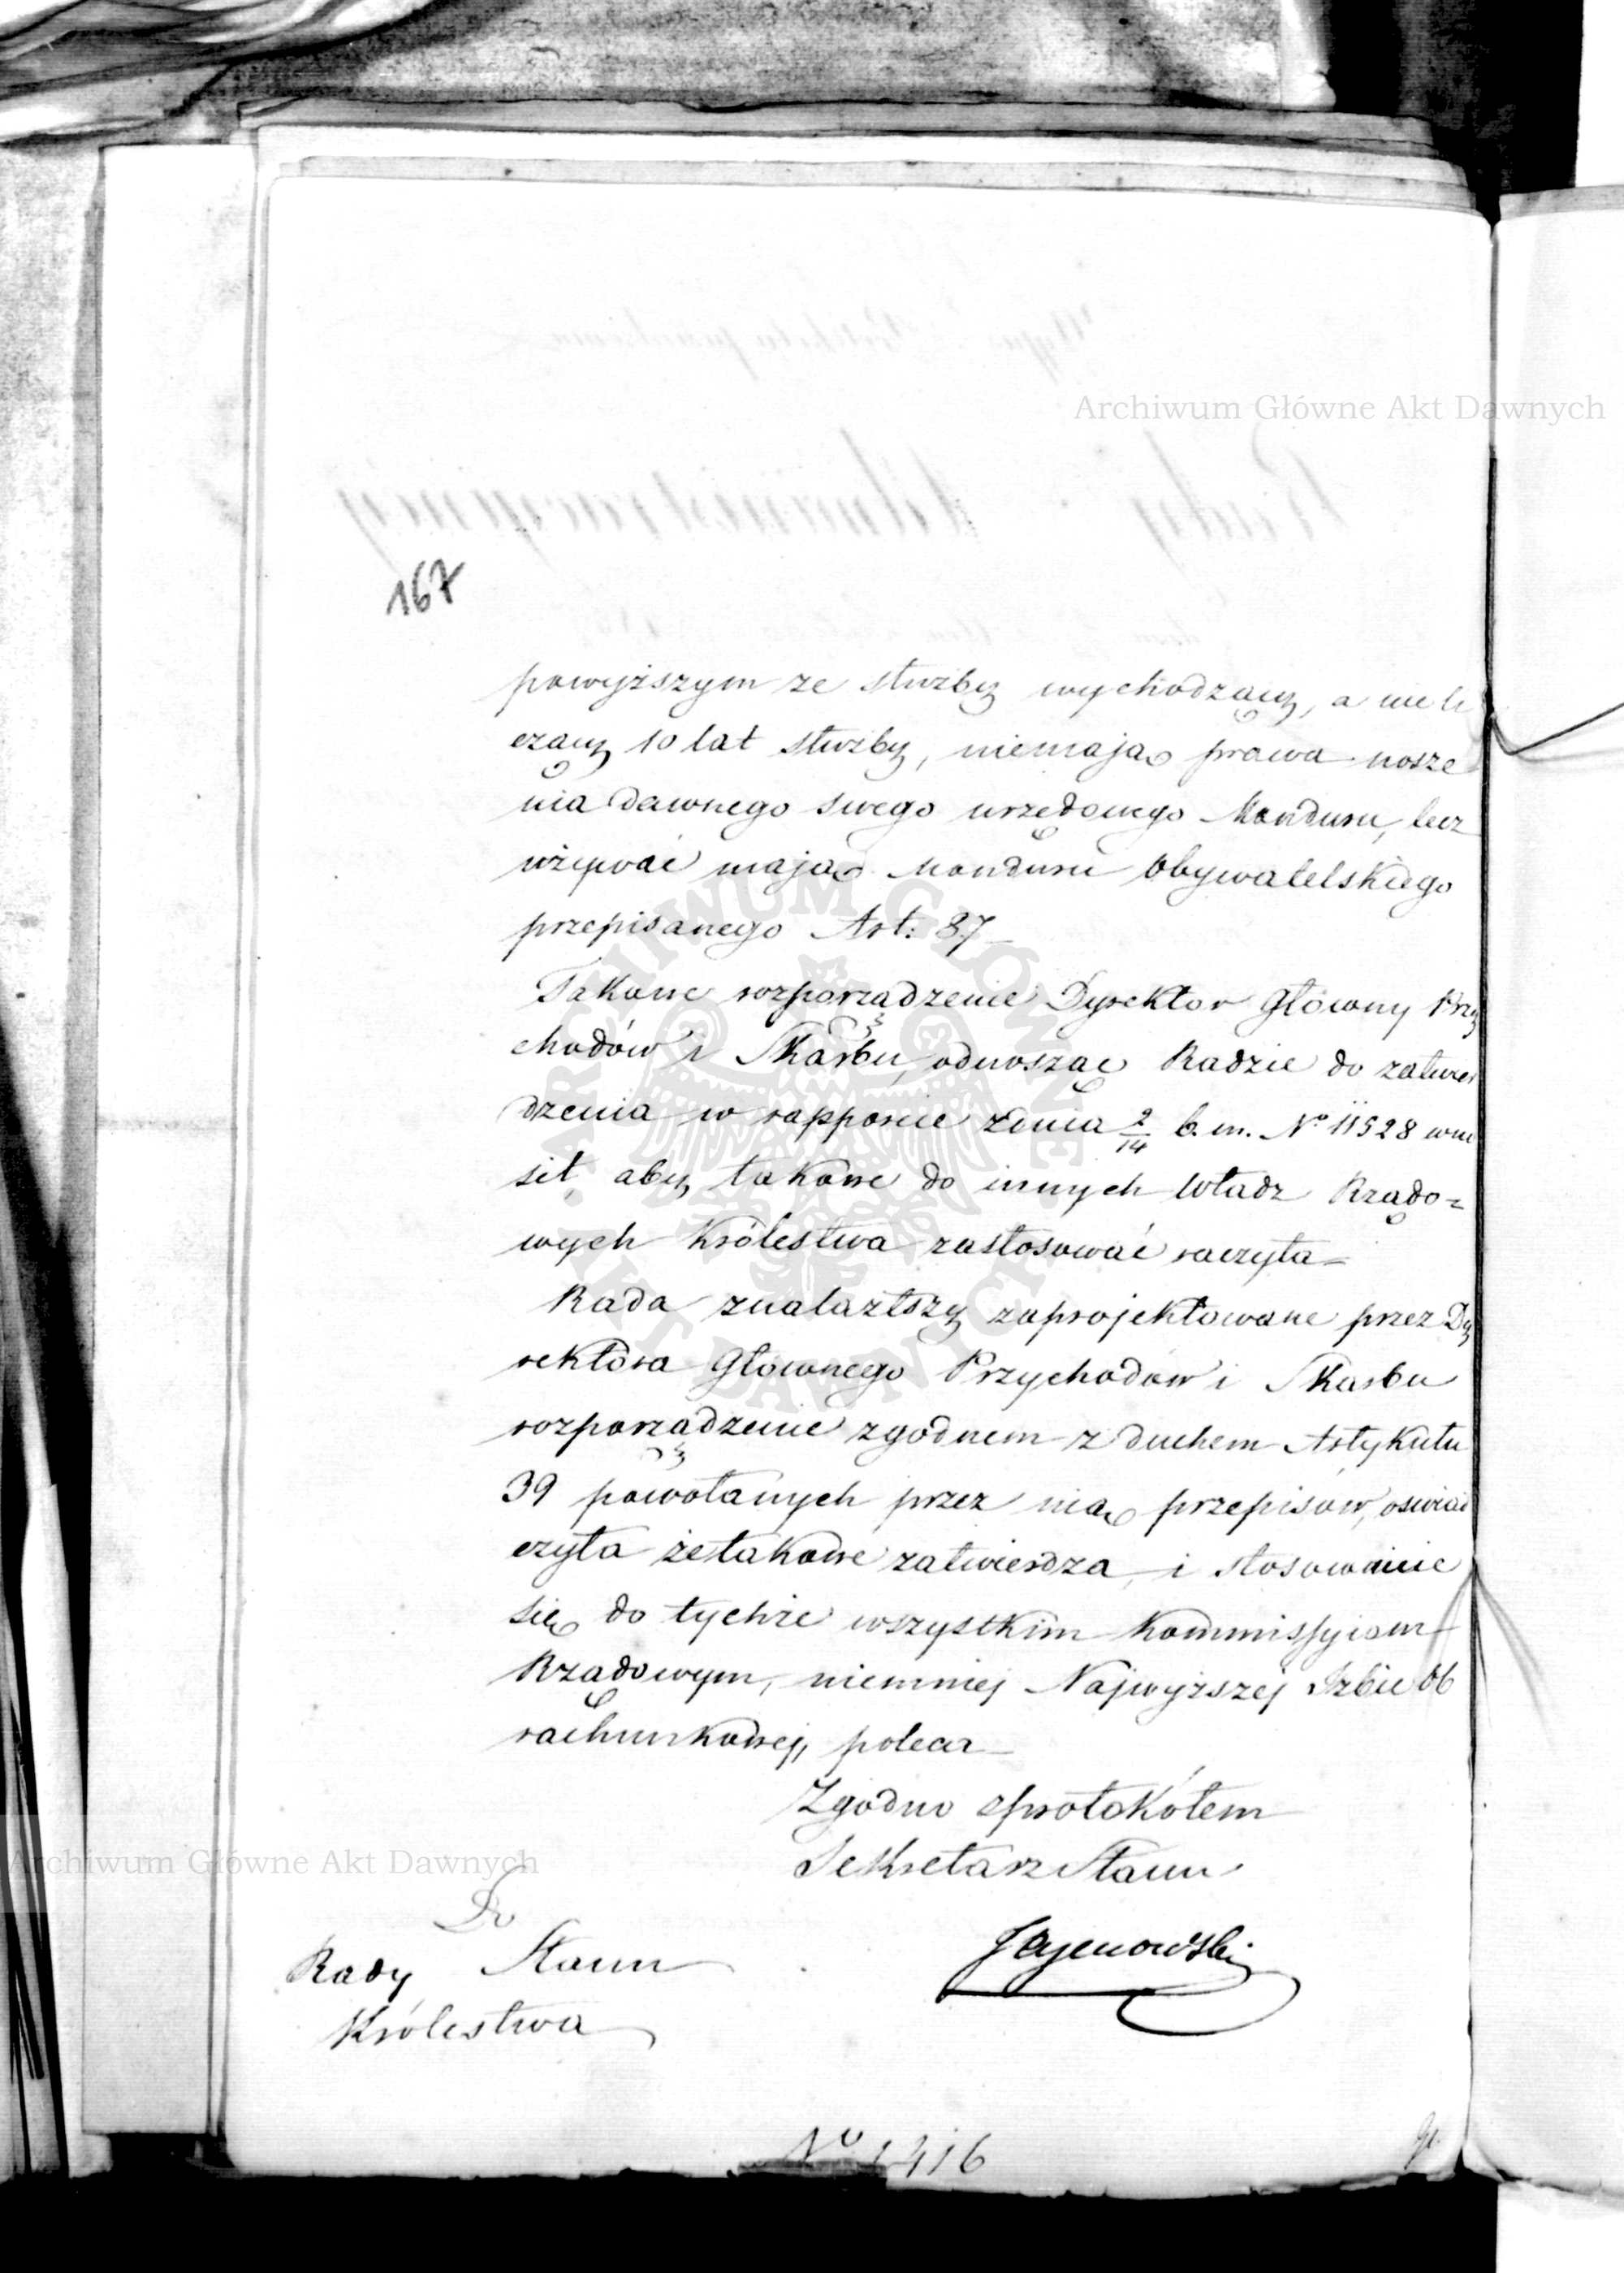 Archiwum Główne Akt Dawnych
167
powyższym ze służby wychodzący, a nieli
czący 10 lat służby, niemają prawa nosze
nia dawnego swego urzędowego Munduru, lecz
używać mają Munduru Obywatelskiego
przepisanego Art: 87
Takowe rozporządzenie Dyrektor Główny Przy
chodów i Skarbu, odnosząc Radzie do zatwier
dzenia w rapporcie zdnia 2/14 b. m. No 11528 wno
sił, aby takowe do innych Władz Rządo=
wych Królestwa zastosować raczyła=
Rada znalazłszy zaprojektowane przez Dy
rektora Głównego Przychodów i Skarbu
rozporządzenie zgodnem z duchem Artykułu
39 powołanych przez nią przepisów, oświad
czyła że takowe zatwierdza, i stosowanie
się do tychże wszystkim Kommissyiom
Rządowym, niemniej Najwyższej Izbie Ob
rachunkowej, poleca
Zgodno z protokółem
Sekretarz Stanu
Archiwum Główne Akt Dawnych
Do
Rady Stanu
Królestwa
No 1416
ARCHIWUM GŁÓWNE AKT DAWNYCH